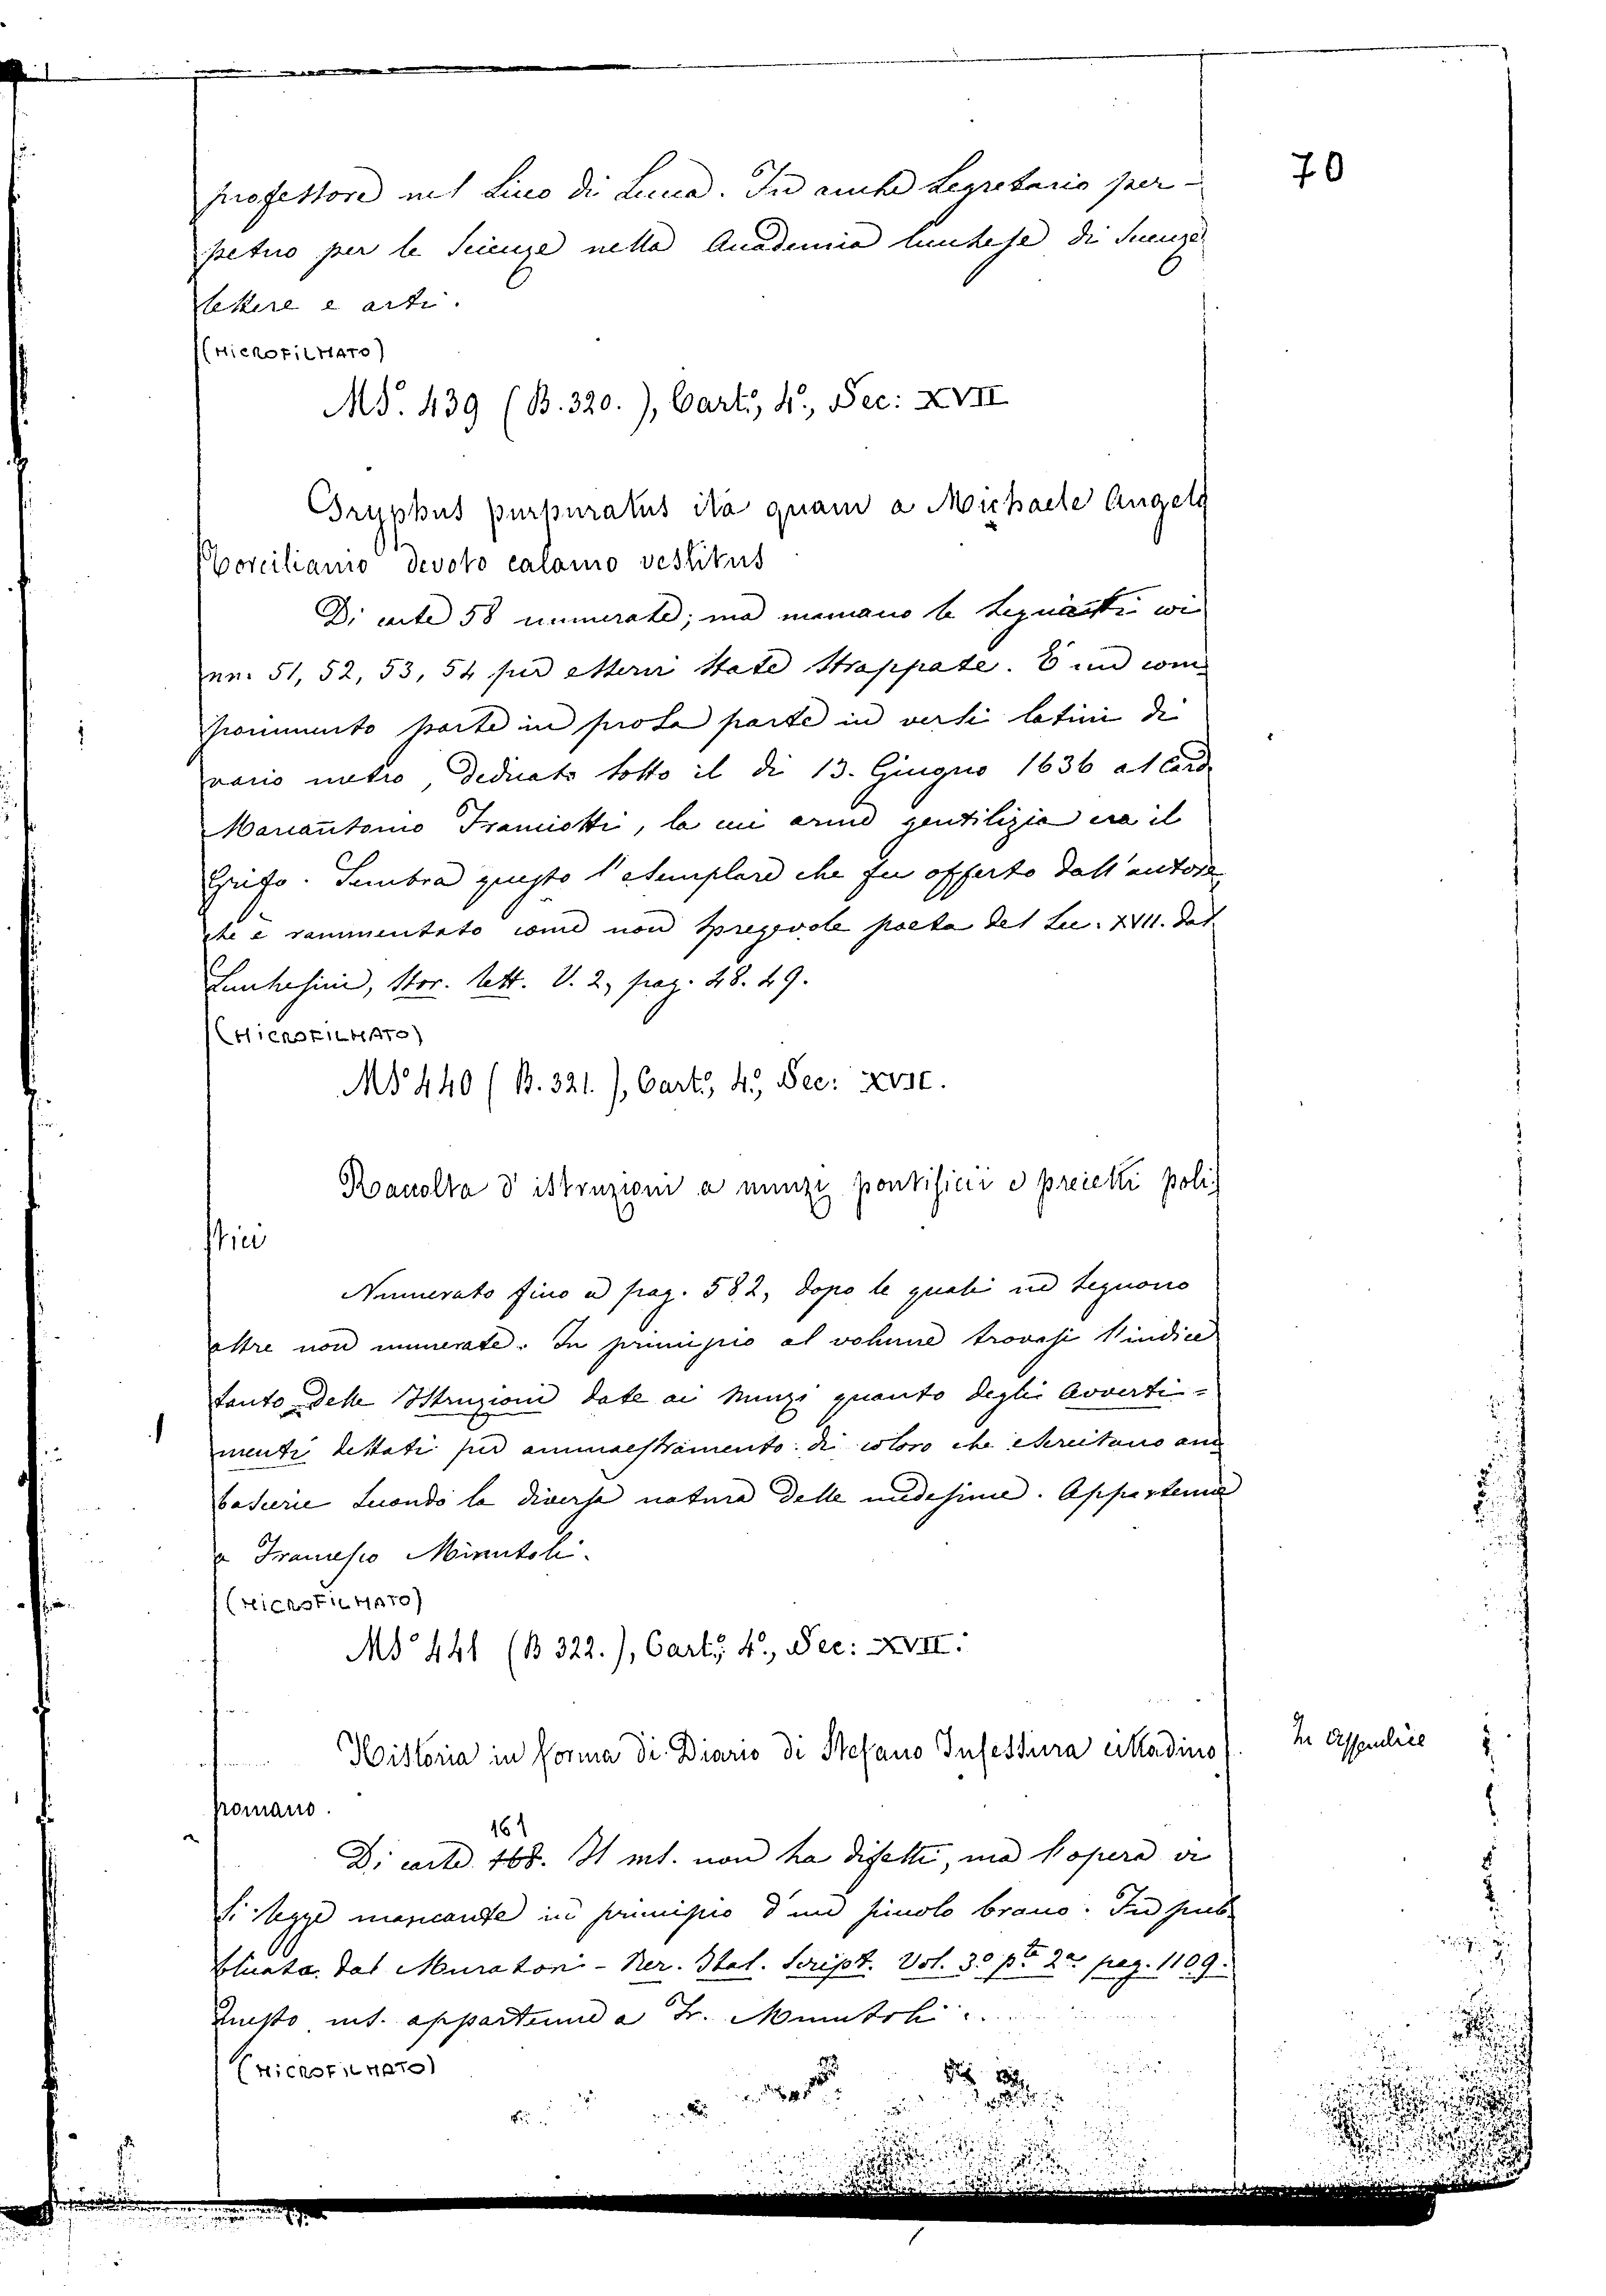 70
professore nel Liceo di Lucca. Fu anche Segretario per-
petuo per le Scienze nella Accademia lucchese di Scienze
lettere e arti.
(MICROFILMATO)
MS. 439 (B. 320.), Cart., 4°., Sec: XVII
Gryphus purpuratus ita quam a Michaele Angelo
Porciliamo devoto calamo vestitus
Di carte 58 numerate; ma mancano le segnate coi
nn. 51, 52, 53, 54 per essersi state strappate. È un com
ponimento parte in prosa parte in versi latini di
vario metro, dedicato sotto il di 13. Giugno 1636 al Card.
Marcantonio Franciotti, la cui arme gentilizia era il
Grifo. Sembra questo l'esemplare che fu offerto dall'autore
che è rammentato come non spregevole poeta del Sec. XVII. dal
Lucchesini, Stor. lett. V. 2, pag. 28. 29.
(MICROFILMATO)
MS 440 (B. 321.), Cart., 4°., Sec: XVII.
Raccolta d'istruzioni a nunzi pontificii e precetti poli
tici
Numerato fino a pag. 582, dopo le quali ne seguono
altre non numerate. In principio al volume trovasi l'indice
tanto delle Istruzioni date ai Nunzi quanto degli Avverti-
menti dettati per ammaestramento di coloro che esercitano am
bascerie secondo la diversa natura delle medesime. Appartenne
a Francesco Minutoli.
(MICROFILMATO)
MS 441 (B 322.), Cart., 4°., Sec: XVII.
Historia in forma di Diario di Stefano Infessura cittadino
romano.
In Appendice
161
Di carte 168. Il ms. non ha difetti, ma l'opera vi
si legge mancante in principio d'un piccolo brano. Fu pub
blicata dal Muratori - Rer. Ital. Script. Vol. 3.° p.te 2.a pag. 1109.
Questo ms. appartenne a Fr. Minutoli.
(MICROFILMATO)